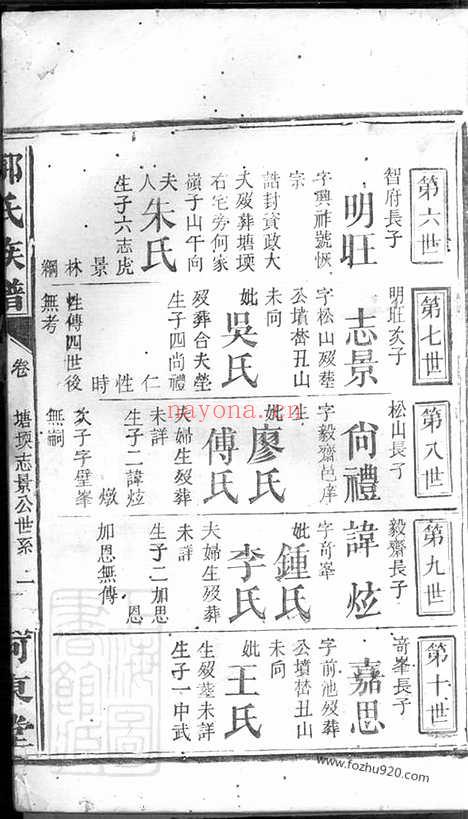 第六世
智府長子
明旺
字興祚號慨
宗
誥封資政大
夫歿葬塘㙇
右宅旁何家
嶺子山午向
夫
人
朱氏
生子六志虎
景
林
綱
第七世
明旺次子
志景
字松山歿葬
公墳
丑山
未向
妣吳氏
歿葬合夫塋
生子四尚禮
仁
性
時
性傳四世後
無考
第八世
松山長子
尙禮
字毅齋邑庠
生
妣廖氏
傅氏
夫婦生歿葬
未詳
生子二諱炫
燉
次子字壁峯
無嗣
第九世
毅齋長子
諱炫
字奇峯
妣鍾氏
李氏
夫婦生歿葬
未詳
生子二加思
恩
加恩無傳
第十世
奇峯長子
嘉思
字前池歿葬
公墳
丑山
未向
妣王氏
生歿葬未詳
生子一中武
氏族譜
卷
塘㙇志景公世系
二
河東堂
nayona.cn
www.fozhu920.com